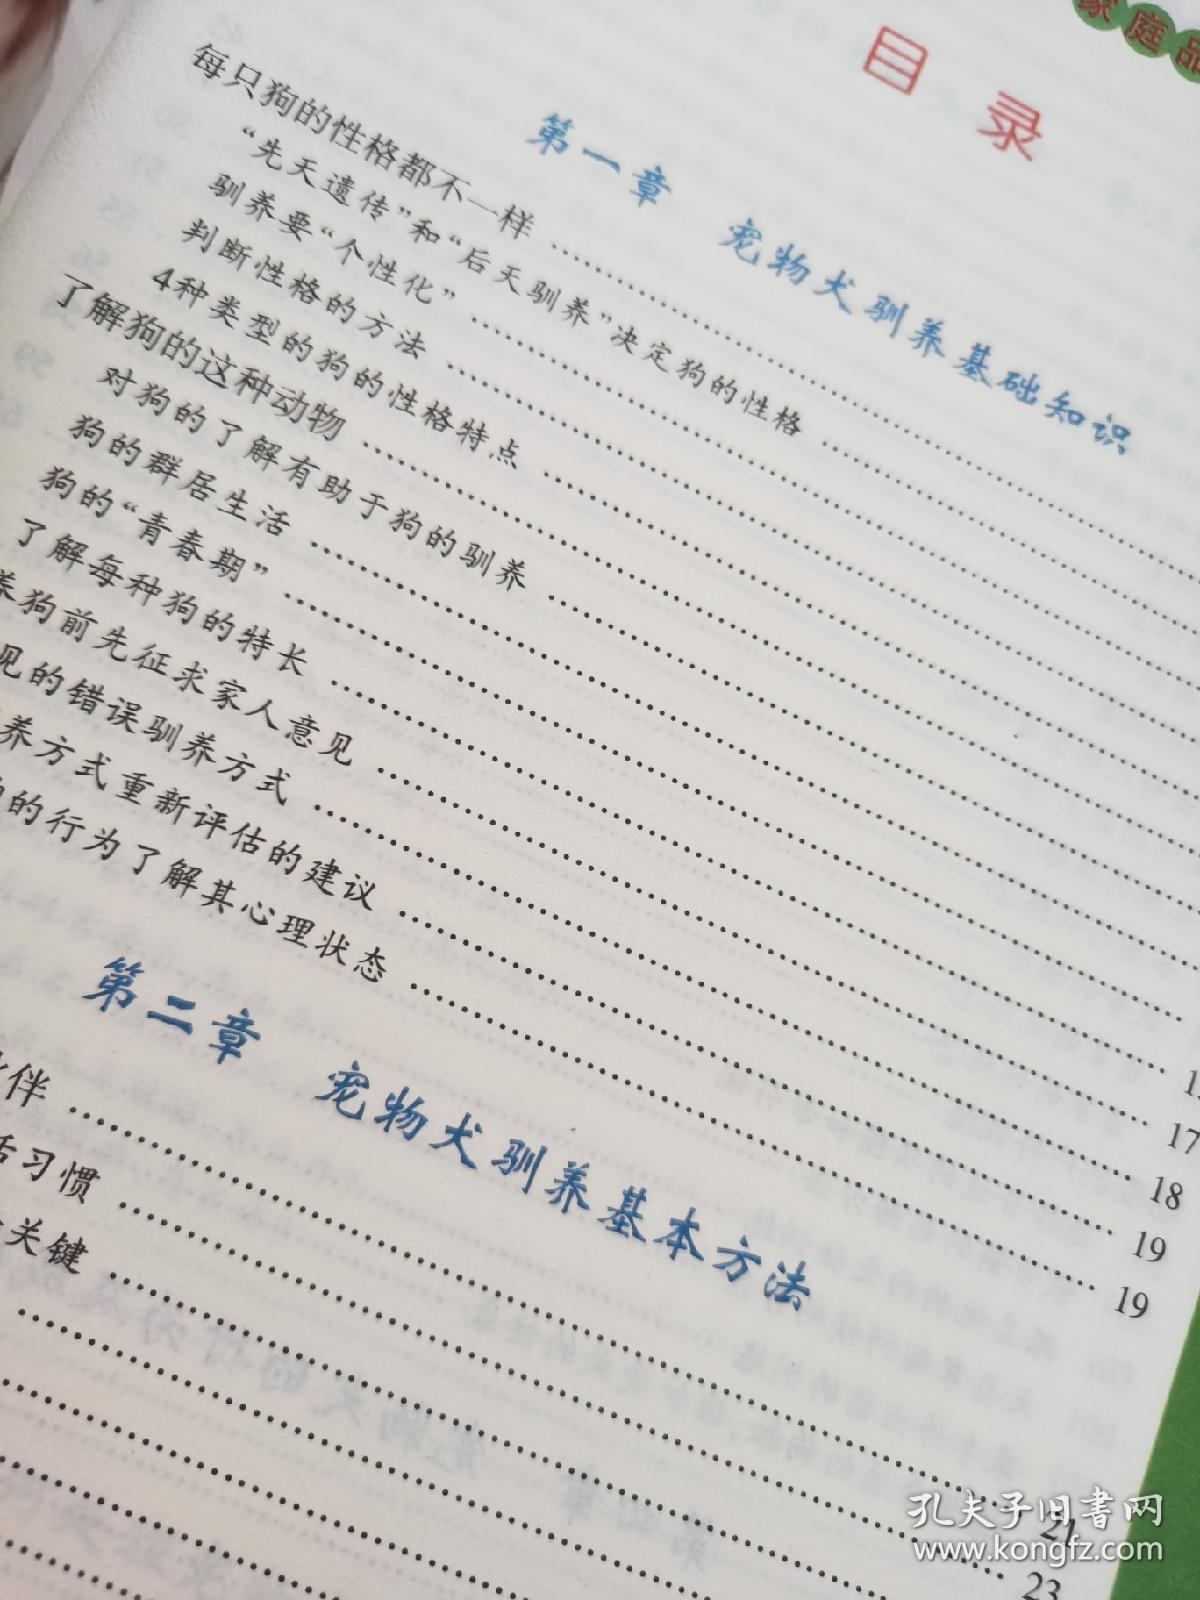 家庭品
目 录
第一章 宠物犬驯养基础知识
每只狗的性格都不一样
“先天遗传”和“后天驯养”决定狗的性格
驯养要“个性化”
判断性格的方法
4种类型的狗的性格特点
了解狗的这种动物
对狗的了解有助于狗的驯养
狗的群居生活
狗的“青春期”
了解每种狗的特长
养狗前先征求家人意见
见的错误驯养方式 17
养方式重新评估的建议 18
的行为了解其心理状态 19
19
第二章 宠物犬驯养基本方法
伙伴 21
活习惯 23
关键
孔夫子旧书网
www.kongfz.com